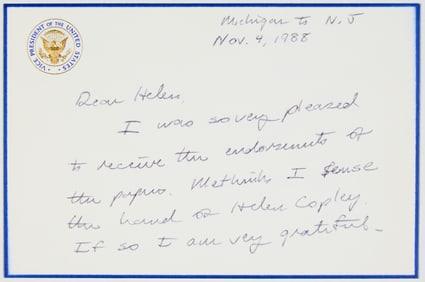 Michigan to N.J
Nov. 4, 1988
VICE PRESIDENT OF THE UNITED STATES
Dear Helen,
I was so very pleased
to receive the endorsements of
the papers. Methinks I sense
the hand of Helen Copley.
If so I am very grateful_